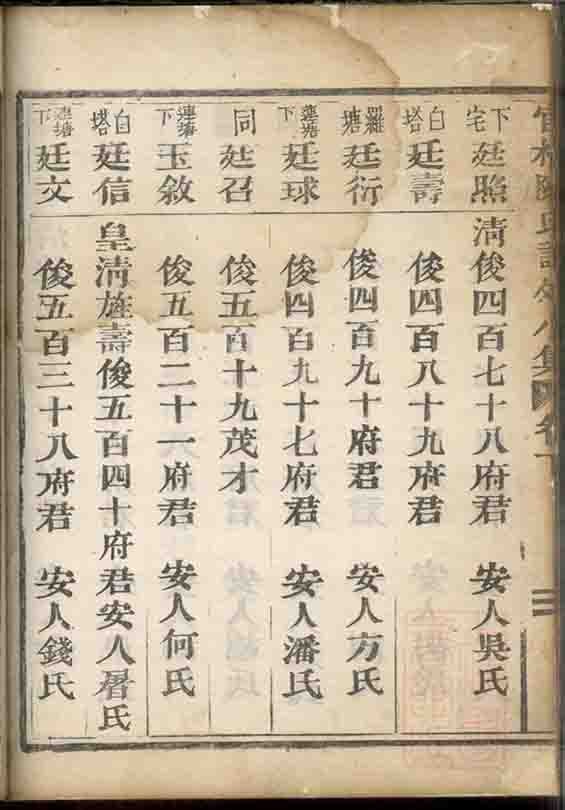 下宅 廷照 清俊四百七十八府君 安人吳氏
白塔 廷壽 俊四百八十九府君
羅塘 廷衍 俊四百九十府君 安人方氏
蓮塘下 廷球 俊四百九十七府君 安人潘氏
同 廷召 俊五百十九茂才
蓮塘下 玉敘 俊五百二十一府君 安人何氏
白塔 廷信 皇清旌壽俊五百四十府君安人屠氏
蓮塘下 廷文 俊五百三十八府君 安人錢氏